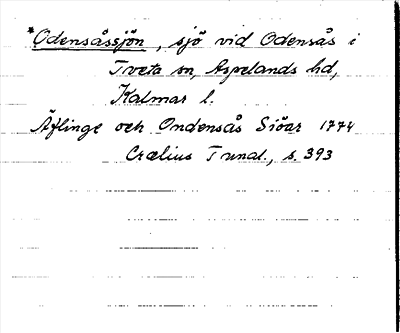 *Odensåssjön, sjö vid Odensås i
Tveta sn, Aspelands hd,
Kalmar l.
Äflinge och Ondensås Siöar 1774
Crælius Tunal., s. 393